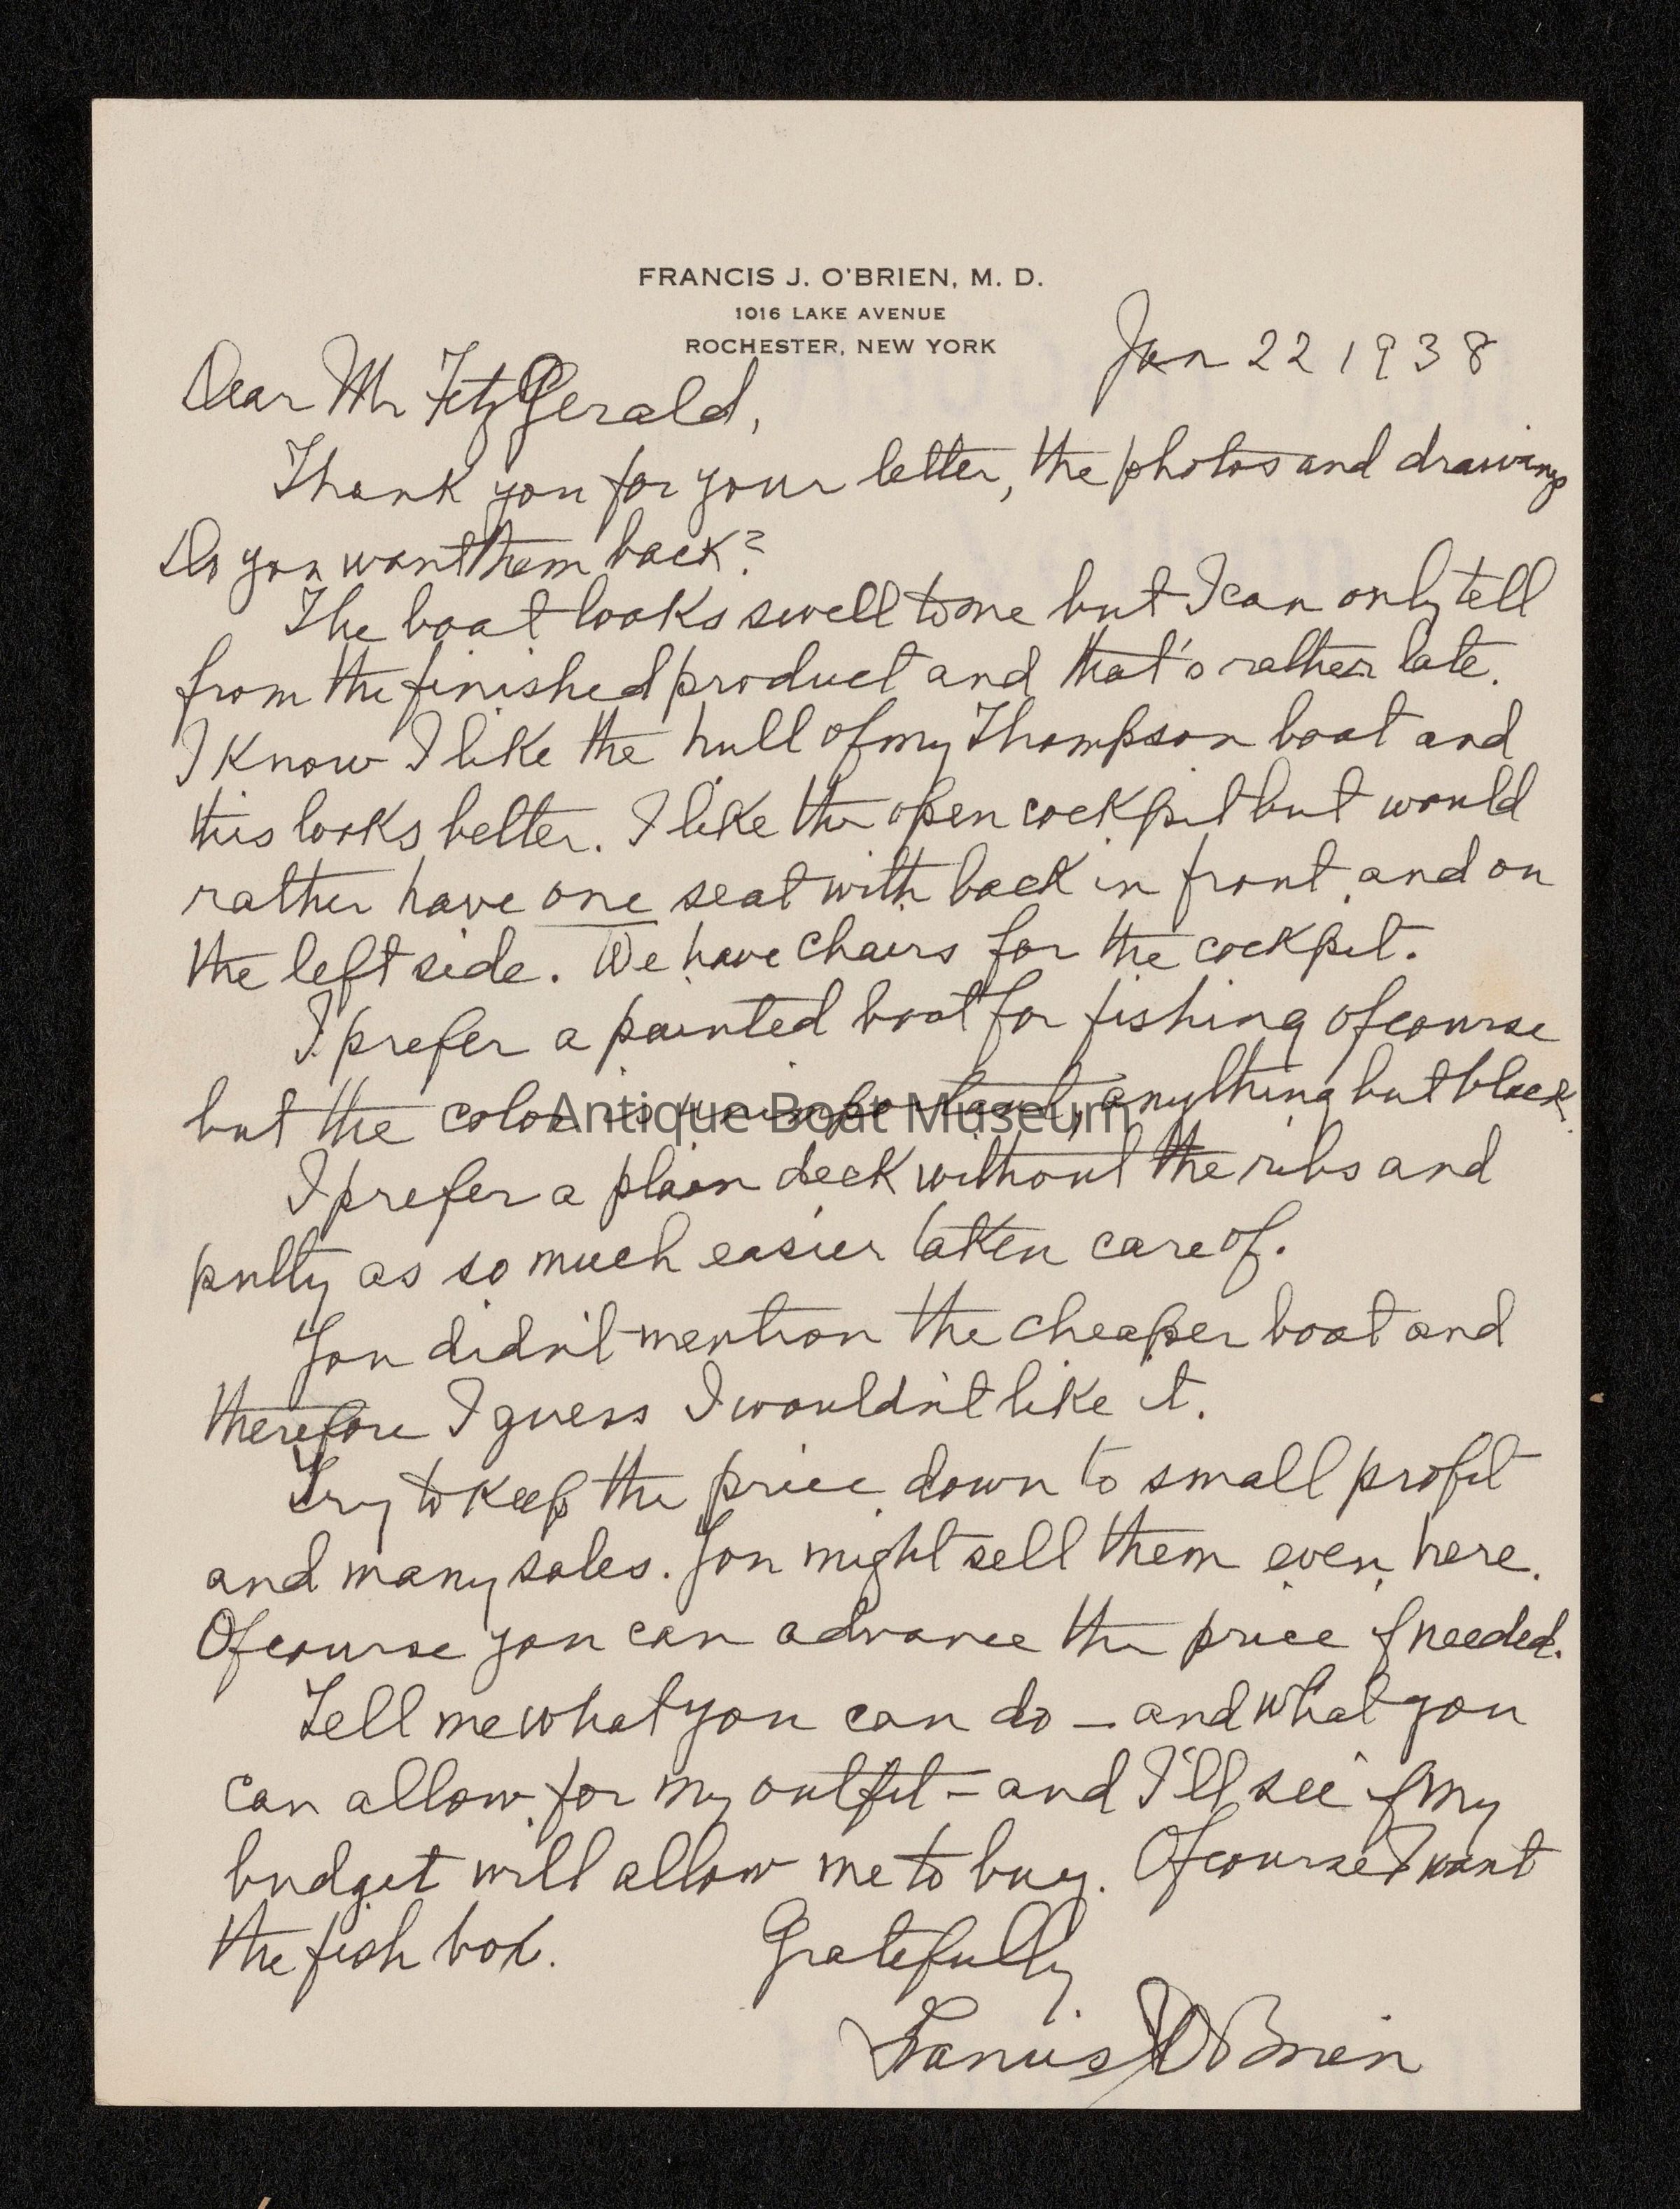 FRANCIS J. O'BRIEN, M. D.
1016 LAKE AVENUE
ROCHESTER, NEW YORK
Jan 22 1938
Dear Mr FitzGerald,
Thank you for your letter, the photos and drawings
Do you want them back?
The boat looks swell to me but I can only tell
from the finished product and that's rather late.
I know I like the hull of my Thompson boat and
this looks better. I like the open cockpit but would
rather have one seat with back in front and on
the left side. We have chairs for the cockpit.
I prefer a painted boat for fishing of course
but the color is unimportant, anything but black.
Antique Boat Museum
I prefer a plain deck without the ribs and
putty as so much easier taken care of.
You didn't mention the cheaper boat and
therefore I guess I wouldn't like it.
Try to keep the price down to small profit
and many sales. You might sell them even here.
Of course you can advance the price if needed.
Tell me what you can do — and what you
can allow for my outfit — and I'll see if my
budget will allow me to buy. Of course I want
the fish box.
Gratefully,
Francis J O'Brien